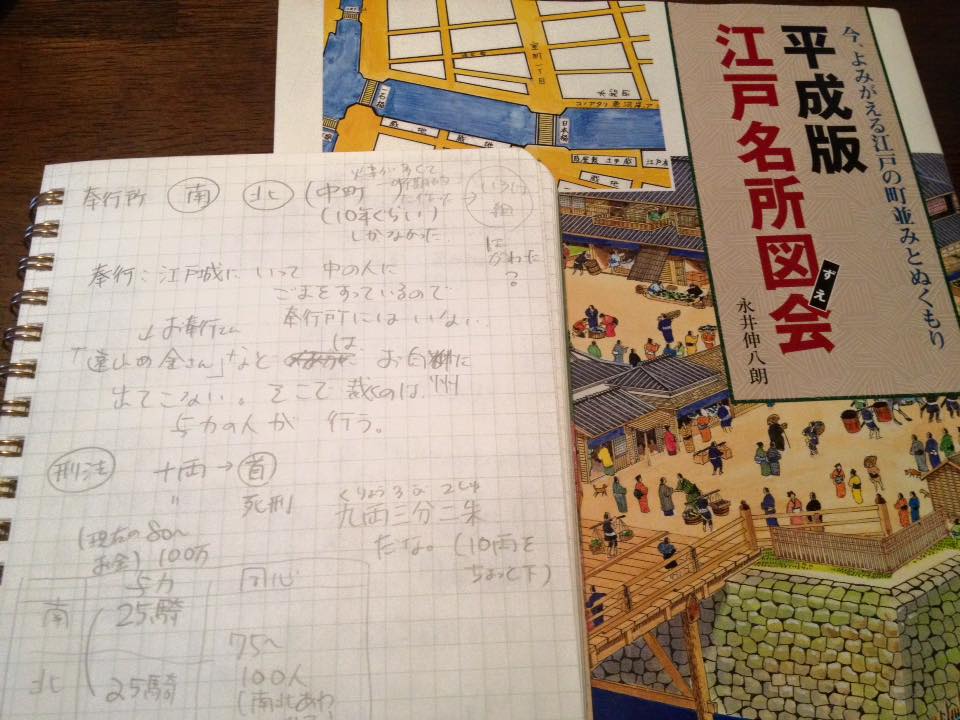 今、よみがえる江戸の町並みとぬくもり
平成版
江戸名所図会
ずえ
永井伸八朗
室町一丁目
一石橋
日本橋
奉行所 南 北 (中町
(10年くらい)
しかなかった
火事が多くて
いろは
組
奉行:江戸城にいって中の人に
ごまをすっているので
奉行所にはいない
お奉行さん
は
「遠山の金さん」など お白州に
出てこない。そこで裁くのは
与力の人が 行う。
刑法 十両→首
〃 死刑
くりょう
九両三分二朱
だな。(10両を
ちょっと下)
(現在の80〜
お金) 100万
与力 同心
南 25騎
75〜
北 25騎 100人
(南北あわ